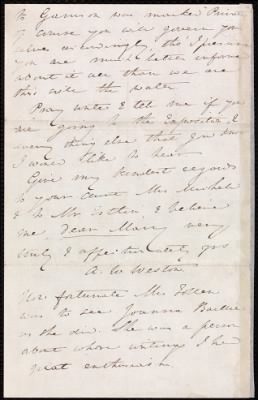 to Garrison was marked Private
of course you will govern your
selves accordingly, tho' I presume
you are much better informed
about it all than we are
this side the water.
Pray write & tell me if you
are going to the Exposition &
every thing else that you know
I would like to hear.
Give my kindest regards
to your Aunt Mrs. Michell
& to Mr. Estlin, & believe
me, dear Mary, very
truly & affectionately yrs
A. W. Weston
How fortunate Mr. Estlin
was to see Joanna Baillie
as she did. She was a person
about whose writings I had
great enthusiasm.